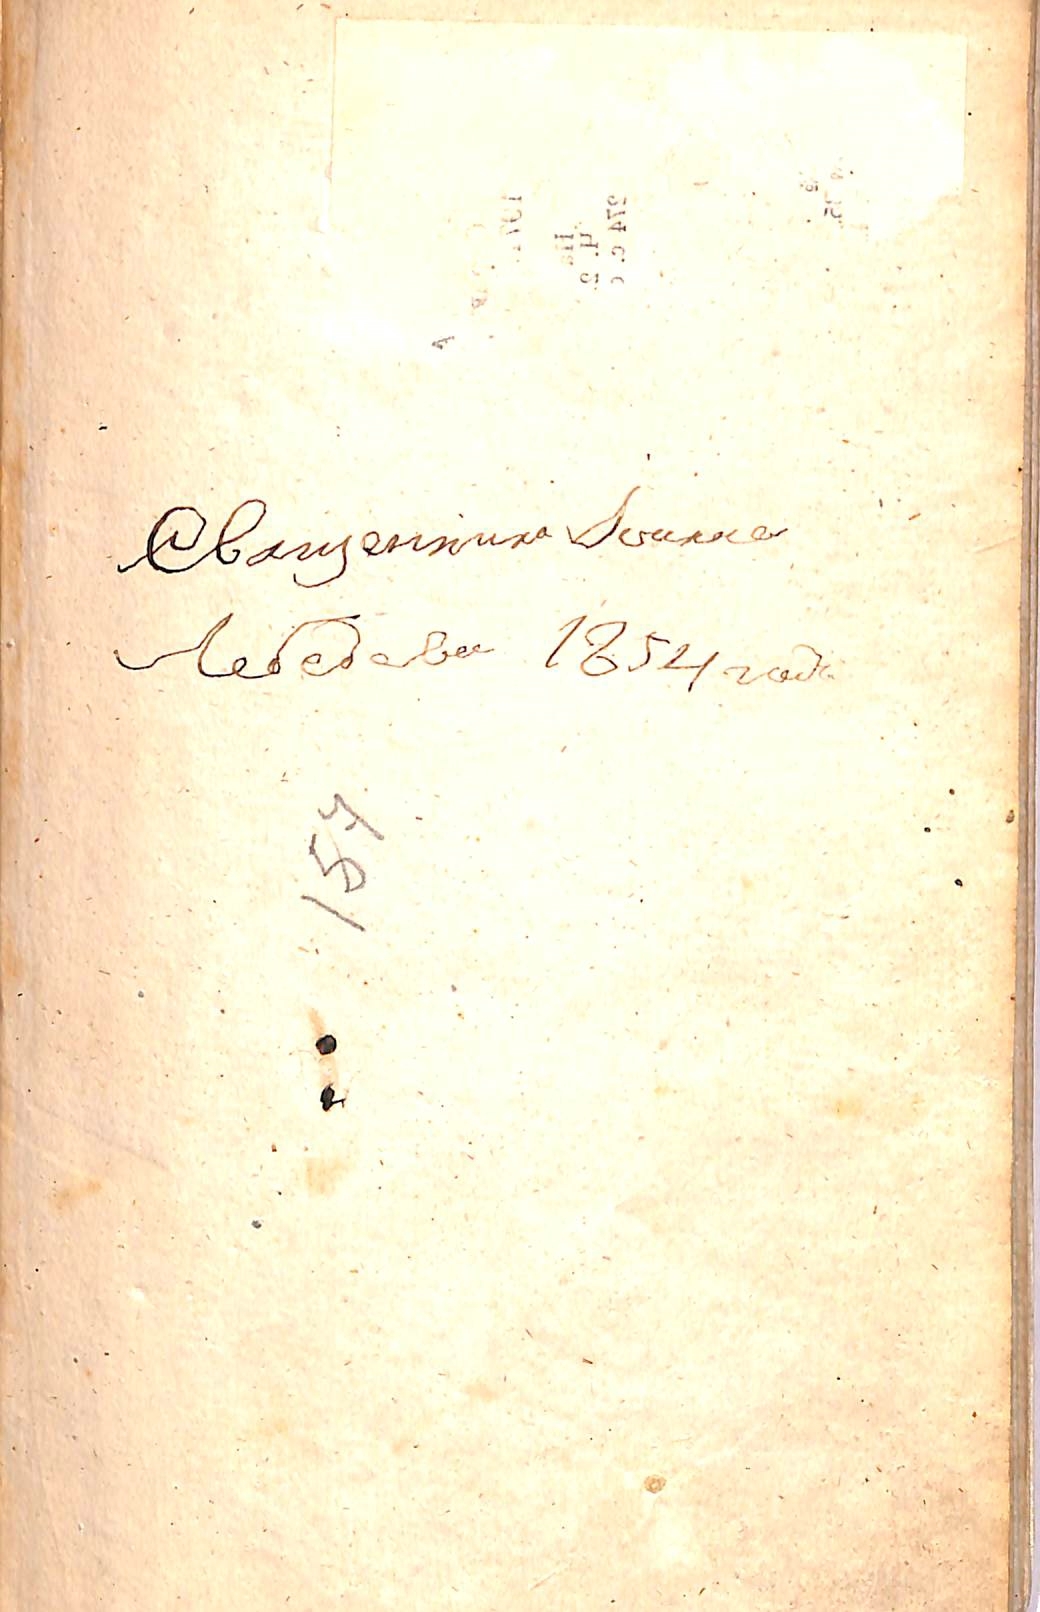 Священника Іоанна
Лебедева 1854 года
157